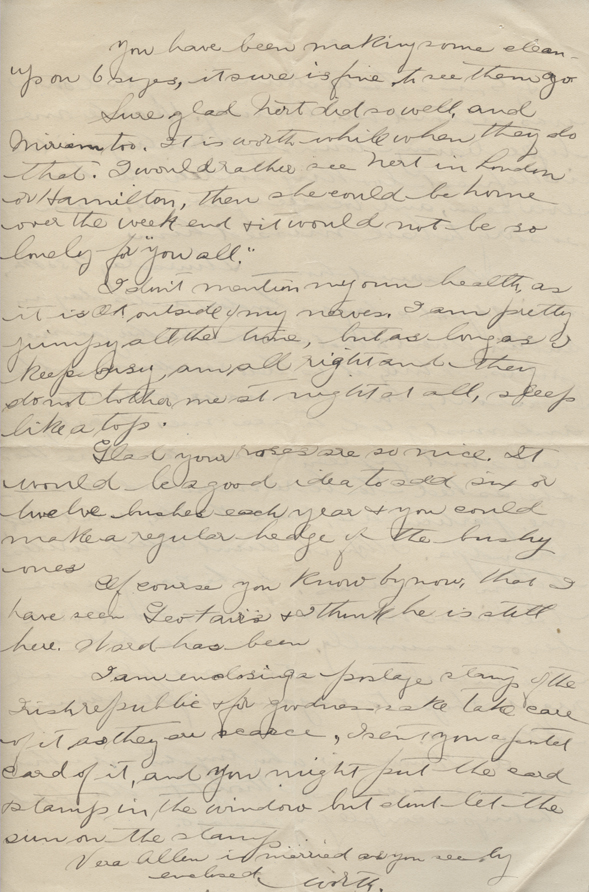 You have been making some clean-
up on 6 sizes, it sure is fine to see them go
Sure glad Nert did so well, and
Miriam too. It is worth while when they do
that. I would rather see Nert in London
or Hamilton, then she could be home
over the week end & it would not be so
lonely for "you all."
I don't mention my own health, as
it is OK outside of my nerves. I am pretty
jumpy all the time, but as long as I
keep busy, am all right and they
do not bother me at night at all, sleep
like a top.
Glad your roses are so nice. It
would be a good idea to add six or
twelve bushes each year & you could
make a regular hedge of the bushy
ones
Of course you know by now, that I
have seen Geo & I think he is still
here. Ward has been
I am enclosing a postage stamp of the
Irish republic & for goodness sake take care
of it as they are scarce, I sent you a
card of it, and you might put the card
& stamp in the window but dont let the
sun on the stamp
Vera Allen is married as you see by
enclosed. Worth.